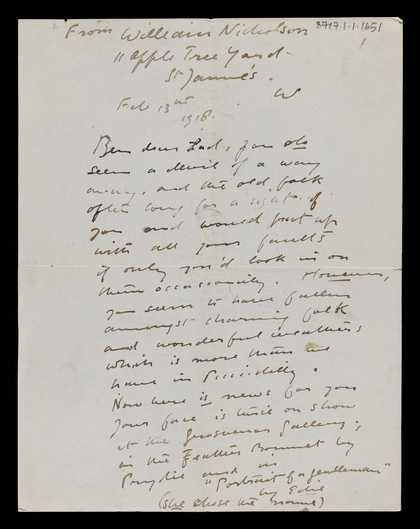 8717.1.1.1651
From William Nicholson
11 Apple Tree Yard.
St James's.
W
Feb 13th
1918.
Ben dear Lad, you do
seem a devil of a way
away, and the old folk
often long for a sight of
you and would put up
with all your faults
if only you'd look in on
them occasionally. However,
you seem to have fallen
amongst charming folk
and wonderful weathers
which is more than we
have in Piccadilly.
Now here is news for you
your face is twice on show
at the Grosvenor Gallery,
in the Feather Bonnet by
and in
"Portrait of a gentleman"
by Edie
(she chose the name)